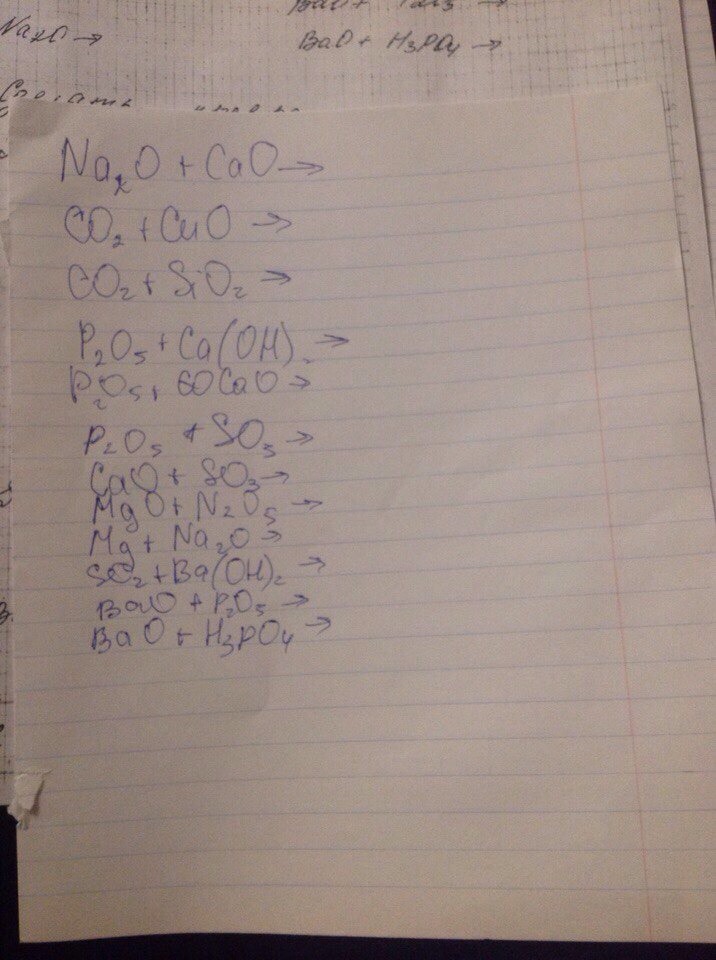 BaO +
Na₂O →
BaO + H₃PO₄ →
Na₂O + CaO →
CO₂ + CuO →
CO₂ + SiO₂ →
P₂O₅ + Ca(OH)₂ →
P₂O₅ + CaO →
P₂O₅ + SO₃ →
CaO + SO₃ →
MgO + N₂O₅ →
Mg + Na₂O →
SO₂ + Ba(OH)₂ →
BaO + P₂O₅ →
BaO + H₃PO₄ →